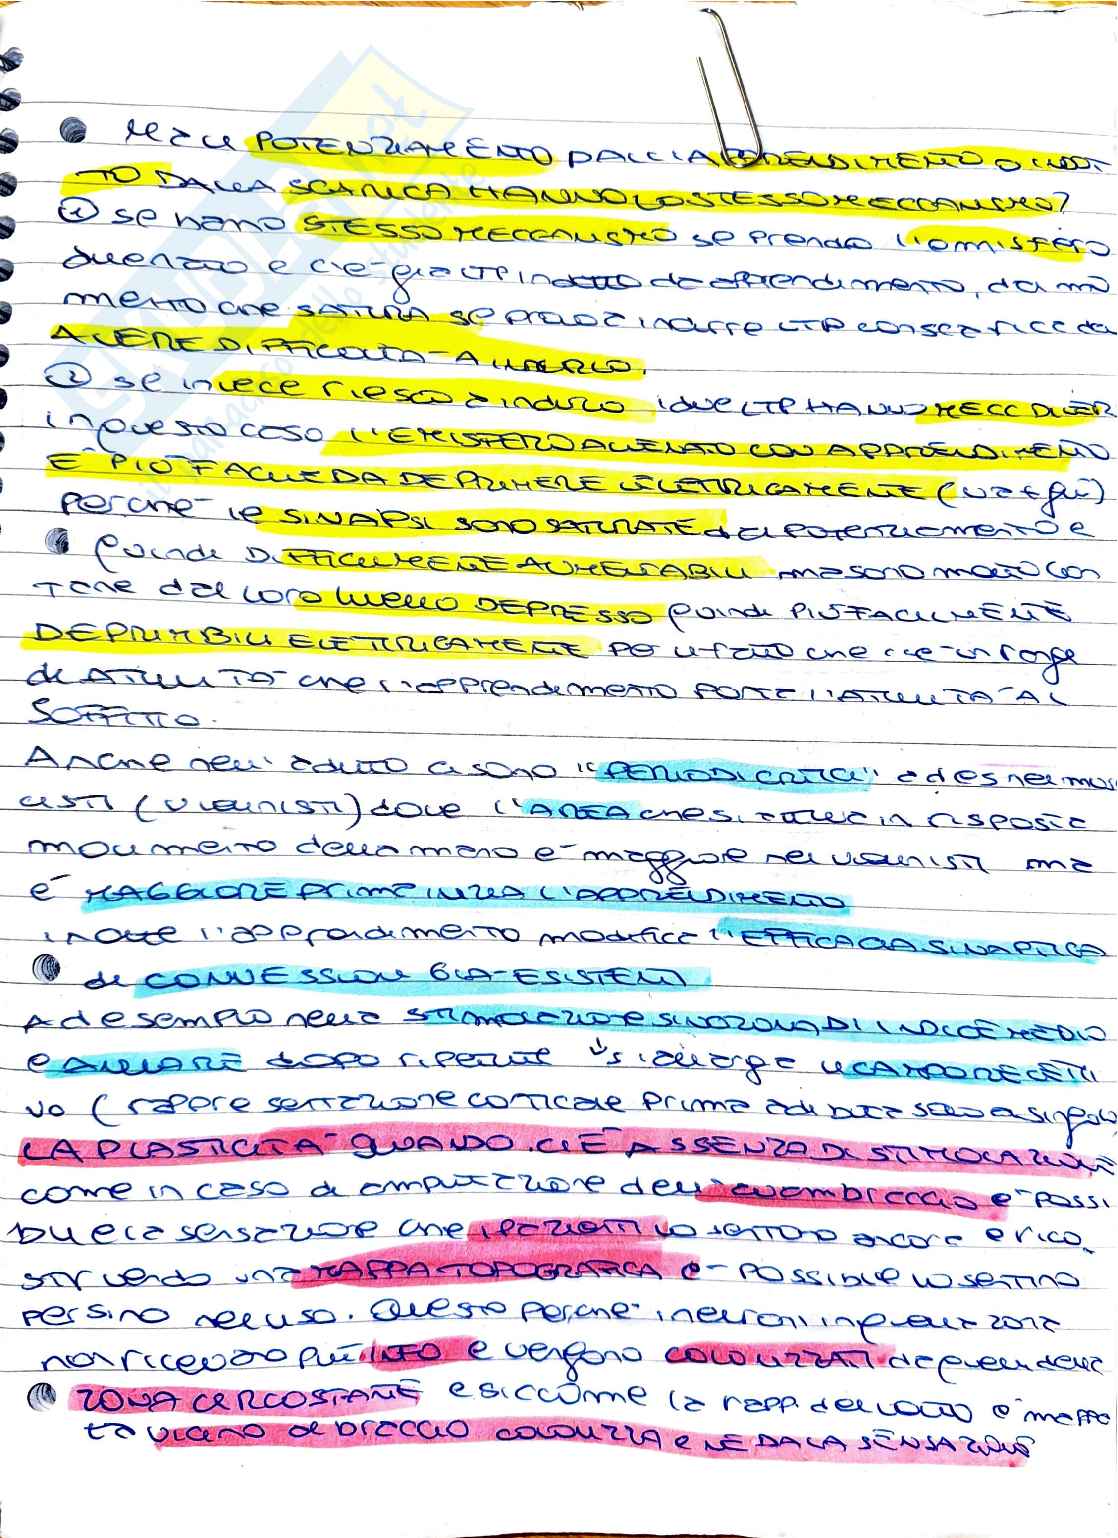 MA IL POTENZIAMENTO DALL'APPRENDIMENTO O INDOT
TO DALLA SCARICA HANNO LO STESSO MECCANISMO?
① se hanno STESSO MECCANISMO se prendo l'emisfero
allenato e c'è già LTP indotto da apprendimento, dal mo
mento che SATURA se provo a indurre LTP con scarica
AVERE DIFFICOLTÀ A
② se invece riesco a indurlo i due LTP HANNO MECC DIVER
in questo caso l'EMISFERO ALLENATO CON APPRENDIMENTO
E' PIÙ FACILE DA DEPRIMERE ELETTRICAMENTE
perché le SINAPSI SONO SATURATE dal POTENZIAMENTO e
quindi DIFFICILMENTE AUMENTABILI ma sono molto lon
tane dal loro livello DEPRESSO quindi PIÙ FACILMENTE
DEPRIMIBILI ELETTRICAMENTE per il fatto che c'è un range
di ATTIVITÀ che l'apprendimento PORTA l'ATTIVITÀ AL
SOFFITTO.
Anche nell'adulto ci sono "PERIODI CRITICI" ad es nei musi
cisti (violinisti) dove l'AREA che si attiva in risposta
movimento della mano è maggiore nei violinisti ma
è MAGGIORE prima inizia l'APPRENDIMENTO
inoltre l'apprendimento modifica l'EFFICACIA SINAPTICA
di CONNESSIONI GIÀ ESISTENTI
Ad esempio nella STIMOLAZIONE SINCRONA DI INDICE MEDIO
e ANULARE dopo ripetute si allarga il CAMPO RECETTI
vo (rappresentazione corticale prima adibita solo a singolo
LA PLASTICITÀ QUANDO C'È ASSENZA DI STIMOLAZIONE
come in caso di amputazione dell'avambraccio è possi
bile la sensazione che i pazienti lo sentono ancora e rico
struendo una MAPPA TOPOGRAFICA è possibile lo sentino
persino nel viso. Questo perché i neuroni in quella zona
non ricevono più INFO e vengono COLONIZZATI da quelli della
ZONA CIRCOSTANTE e siccome la rapp. del volto è mappa
ta vicino al braccio COLONIZZA e NE DA LA SENSAZIONE